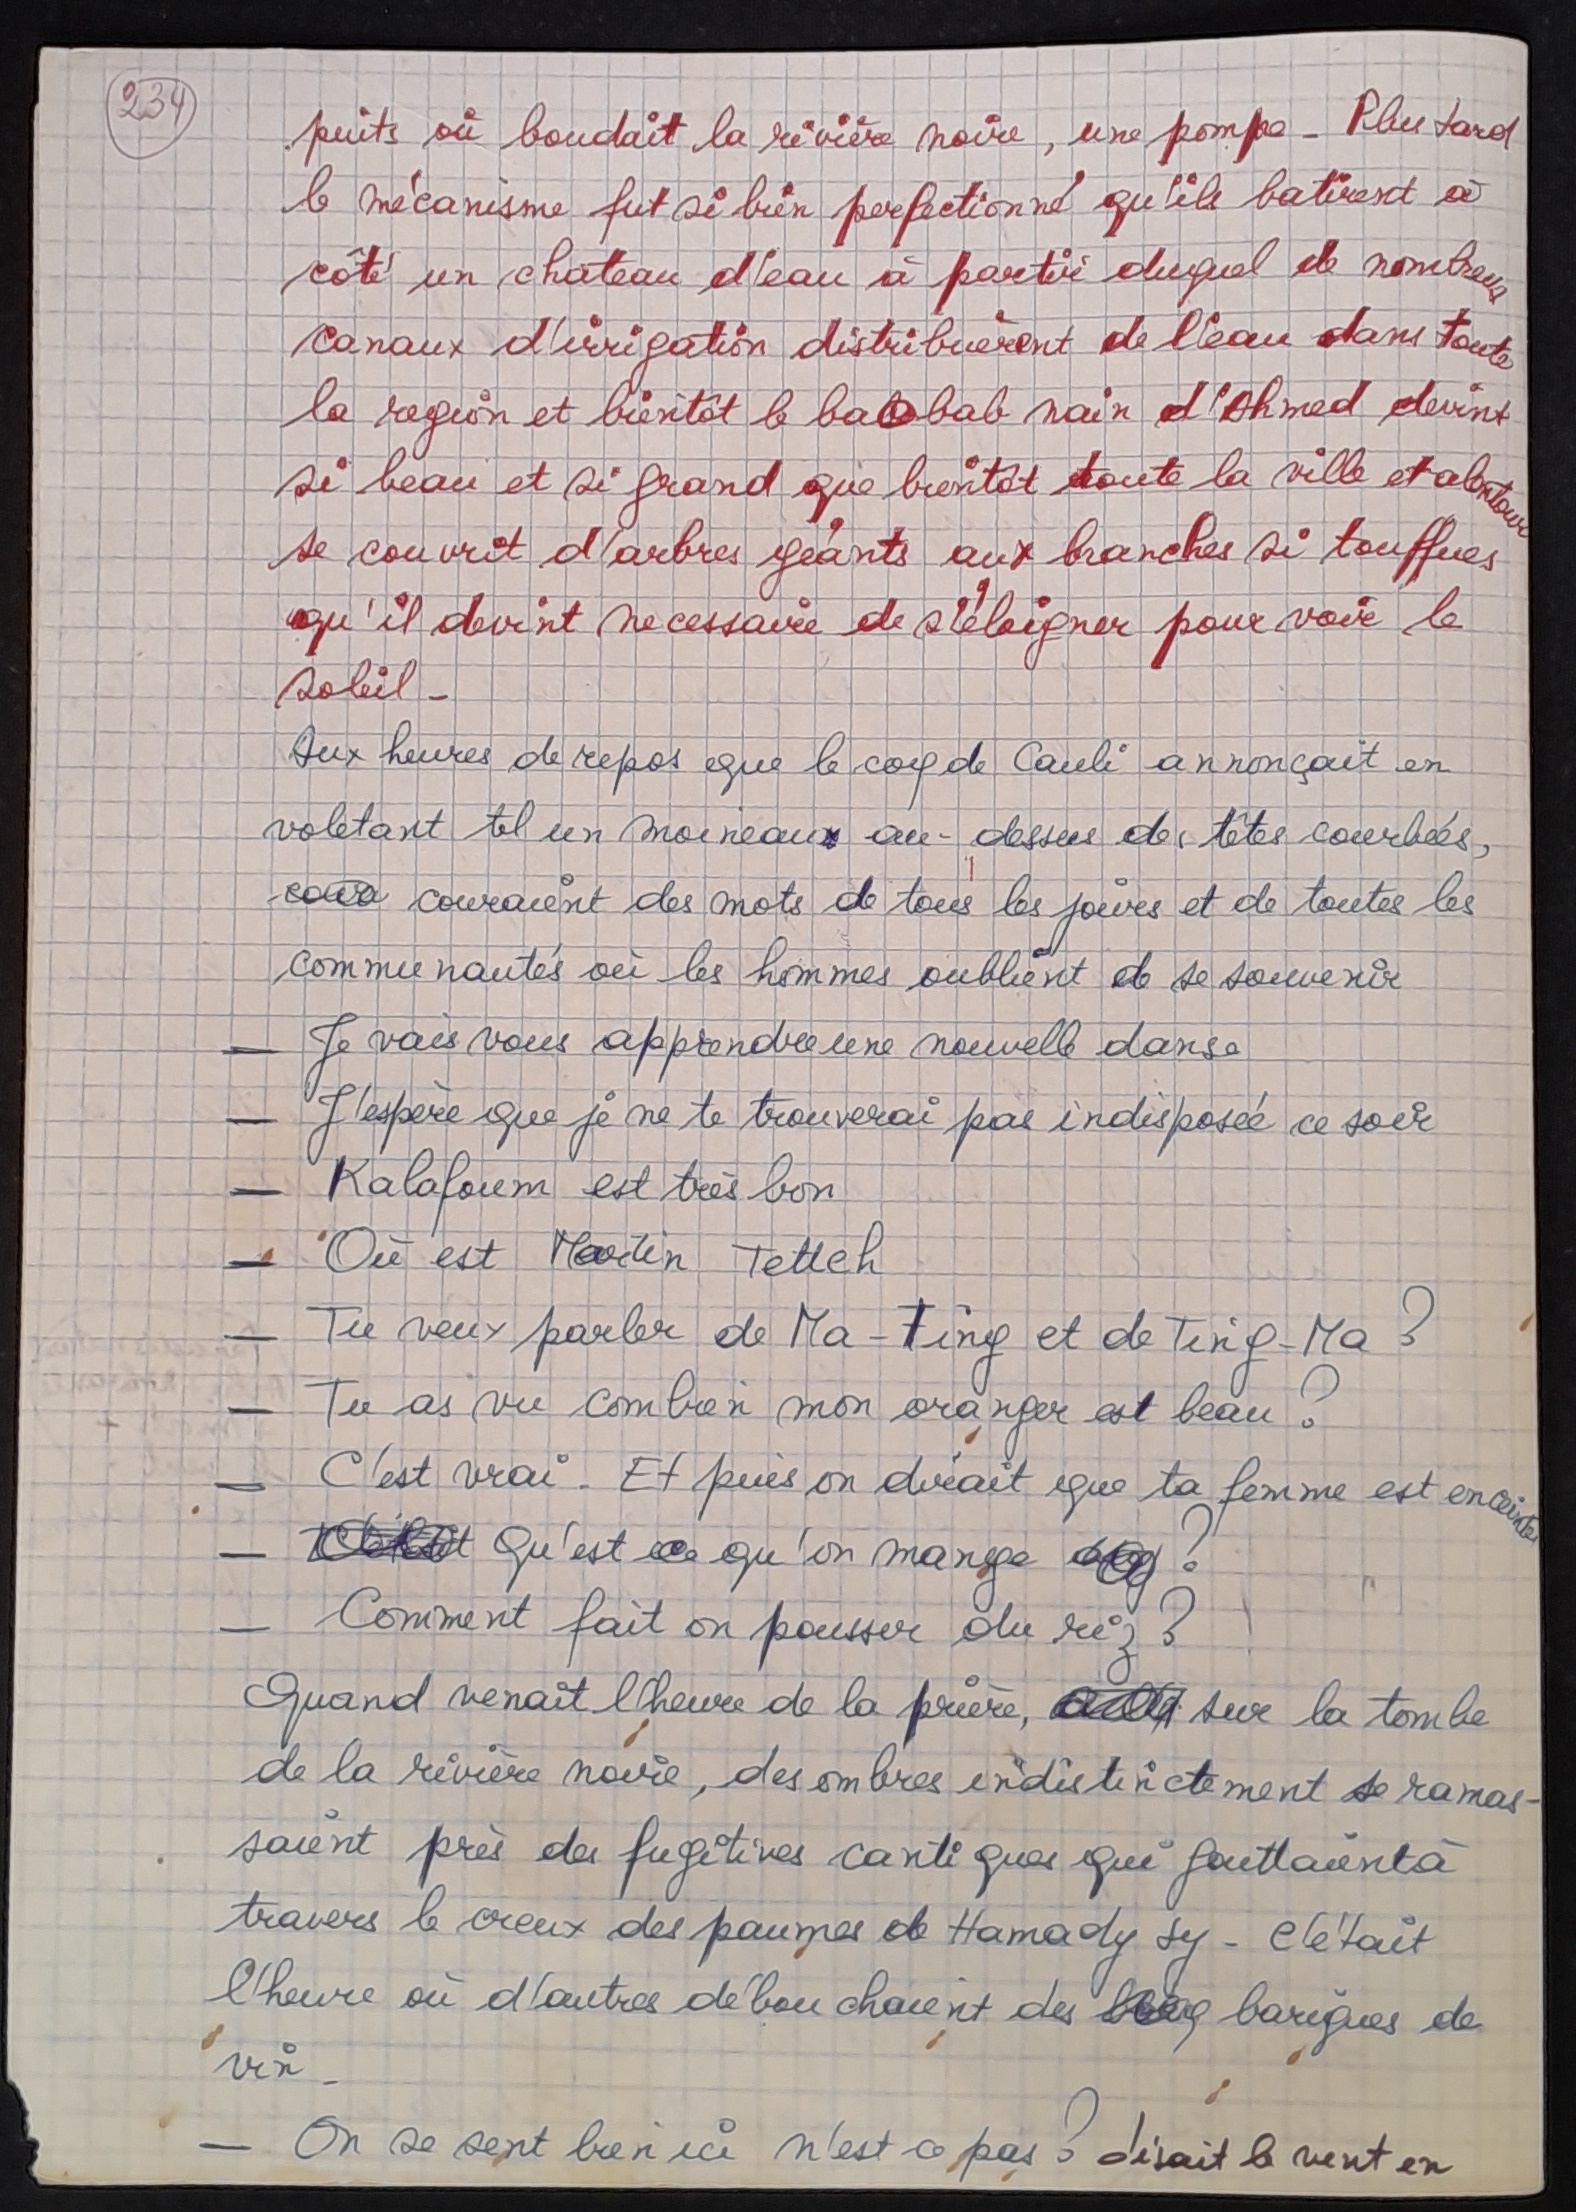 234
puits où boudait la rivière noire, une pompe - Plus tard
le mécanisme fut si bien perfectionné qu'ils batirent à
côté un chateau d'eau à partir duquel de nombreux
canaux d'irrigation distribuèrent de l'eau dans toute
la region et bientôt le baobab nain d'Ahmed devint
si beau et si grand que bientôt toute la ville et alentour
se couvrit d'arbres géants aux branches si touffues
qu'il devint necessaire de s'éloigner pour voir le
soleil -
Aux heures de repos que le coq de Cauli annonçait en
voletant tel un moineau au-dessus des têtes courbées,
couraient des mots de tous les jours et de toutes les
communautés où les hommes oublient de se souvenir
— Je vais vous apprendre une nouvelle danse
— J'espère que je ne te trouverai pas indisposée ce soir
— Kalafoum est très bon
— Où est Martin Tetteh
— Tu veux parler de Ma-Ting et de Ting-Ma ?
— Tu as vu combien mon oranger est beau ?
— C'est vrai - Et puis on dirait que ta femme est enceinte
— Qu'est ce qu'on mange ?
— Comment fait on pousser du riz ?
Quand venait l'heure de la prière, sur la tombe
de la rivière noire, des ombres indistinctement se ramas-
saient près des fugitives cantiques qui gouttaient à
travers le creux des paumes de Hamady Sy - C'était
l'heure où d'autres débouchaient des barigues de
vin -
— On se sent bien ici n'est ce pas ? disait le vent en